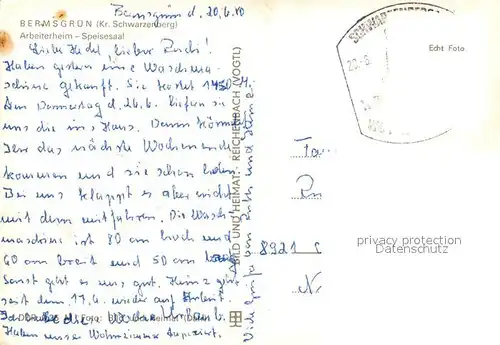 Bermsgrün d. 20.6.80
BERMSGRÜN (Kr. Schwarzenberg)
Arbeiterheim – Speisesaal
Liebe Hedel, lieber Rudi!
Haben gestern eine Waschma-
schine gekauft. Sie kostet 1450 M.
Am Donnerstag d. 26.6. liefern sie
uns die ins Haus. Dann könnt
Ihr das nächste Wochenende
kommen und sie schon holen
Bei uns klappt es aber nicht
mit dem mitfahren. Die Wasch
maschine ist 80 cm hoch und
60 cm breit und 50 cm
Sonst geht es uns gut. Heinz geht
seit dem 17.6. wieder auf Arbeit.
Urlaub.
Haben unser Wohnzimmer tapeziert.
Viele Grüße von
BILD UND HEIMAT REICHENBACH (VOGTL)
Echt Foto
SCHWARZENBERG
Fam
Ru
8921
N
privacy protection
Datenschutz